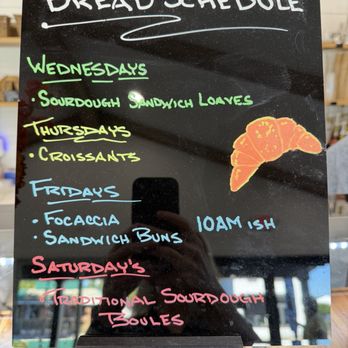 BREAD SCHEDULE
WEDNESDAYS
• SOURDOUGH SANDWICH LOAVES
THURSDAYS
• CROISSANTS
FRIDAYS
• FOCACCIA 10AM ISH
• SANDWICH BUNS
SATURDAY'S
• TRADITIONAL SOURDOUGH
BOULES